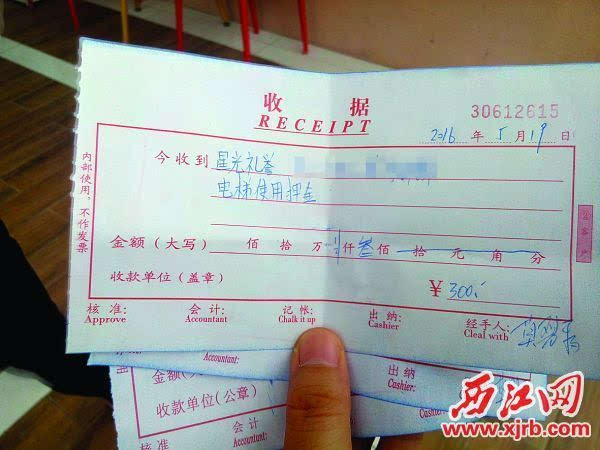 收 据
RECEIPT
30612615
2016 年 5 月 19 日
今收到 星光礼誉
电梯使用押金
金额（大写） 佰 拾 万 仟 叁 佰 拾 元 角 分
收款单位（盖章） ¥ 300.
内部使用，不作发票
核准：
Approve
会计：
Accountant
记帐：
Chalk it up
出纳：
Cashier
经手人：
Cleal with
Accountant:
Cashier:
金额(大
收款单位(公章)
出纳
Cashier:
核准
会计
西江网
www.xjrb.com